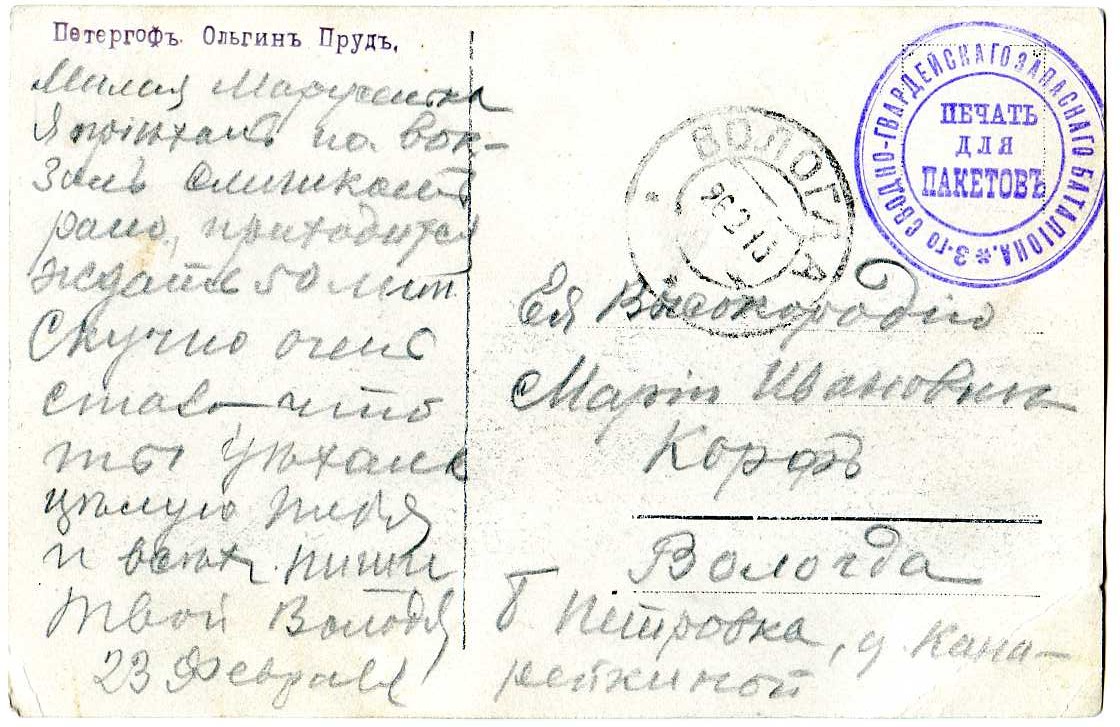 Петергофъ. Ольгинъ Прудъ.
Милая Марусенька
Я пріѣхалъ на вок-
залъ слишкомъ
рано, приходится
ждать 50 мин.
Скучно очень
стало что
ты уѣхала
цѣлую тебя
и всѣхъ пиши
твой Володя
23 Февраля
3-ГО СВОДНО-ГВАРДЕЙСКАГО ЗАПАСНАГО БАТАЛІОНА.
ПЕЧАТЬ
ДЛЯ
ПАКЕТОВЪ
ВОЛОГДА
26 2 15
Ея Высокородію
Маріи Ивановнѣ
Корфъ
Вологда
Б Петровка, д Кана-
рейкиной